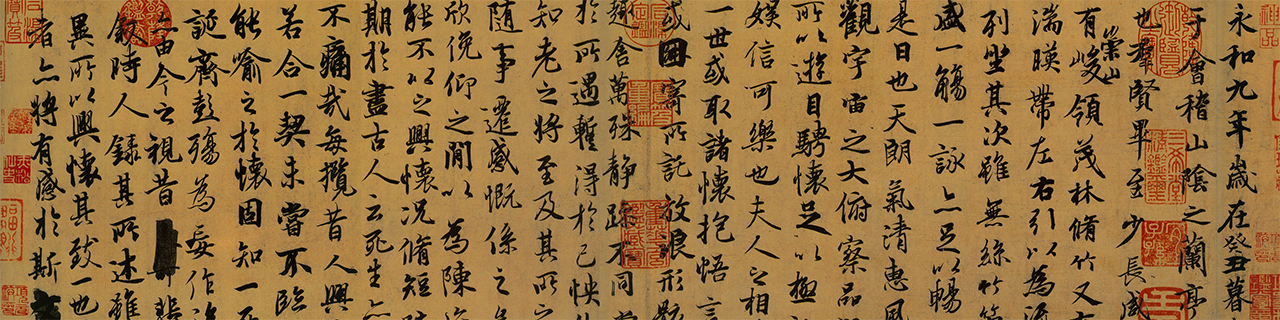 永和九年歲在癸丑暮
于會稽山陰之蘭亭
也羣賢畢至少長咸
有崇山峻領茂林脩竹又有
湍暎帶左右引以為流
列坐其次雖無絲竹管
盛一觴一詠亦足以暢
是日也天朗氣清惠風
觀宇宙之大俯察品
所以遊目騁懷足以極
娛信可樂也夫人之相
一世或取諸懷抱悟言
或因寄所託放浪形骸
趣舍萬殊靜躁不同當
於所遇蹔得於己怏
知老之將至及其所之
隨事遷感慨係之
欣俛仰之閒以為陳迹
能不以之興懷況脩短
期於盡古人云死生亦
不痛哉每攬昔人興
若合一契未嘗不臨
能喻之於懷固知一死
誕齊彭殤為妄作後
由今之視昔悲
叙時人錄其所述雖
異所以興懷其致一也
者亦將有感於斯